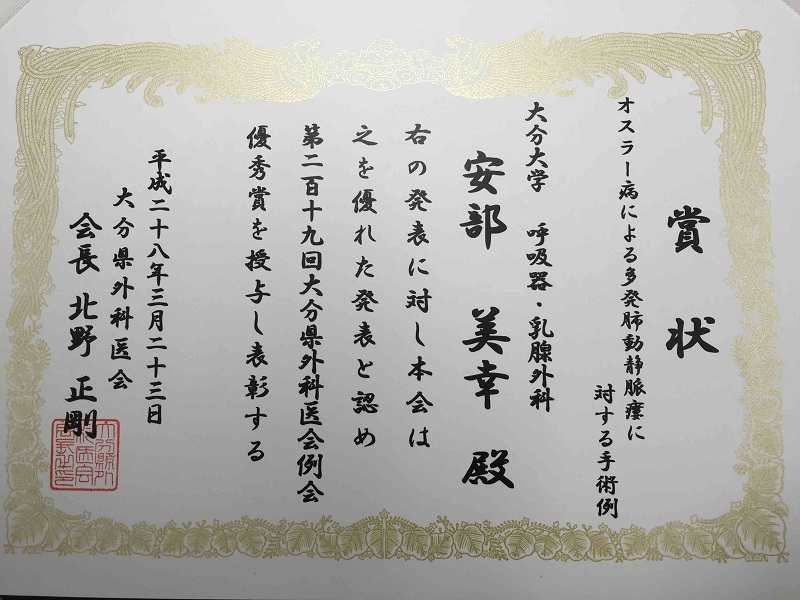 賞状
オスラー病による多発肺動静脈瘻に
対する手術例
大分大学 呼吸器・乳腺外科
安部 美幸 殿
右の発表に対し本会は
之を優れた発表と認め
第二百十九回大分県外科医会例会
優秀賞を授与し表彰する
平成二十八年三月二十三日
大分県外科医会
会長 北野 正剛